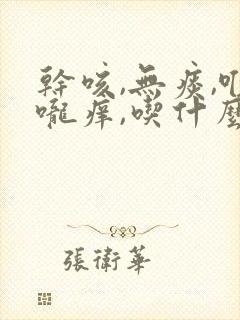 幹咳,無痰,
嚨痒,喫什麼
張衛華